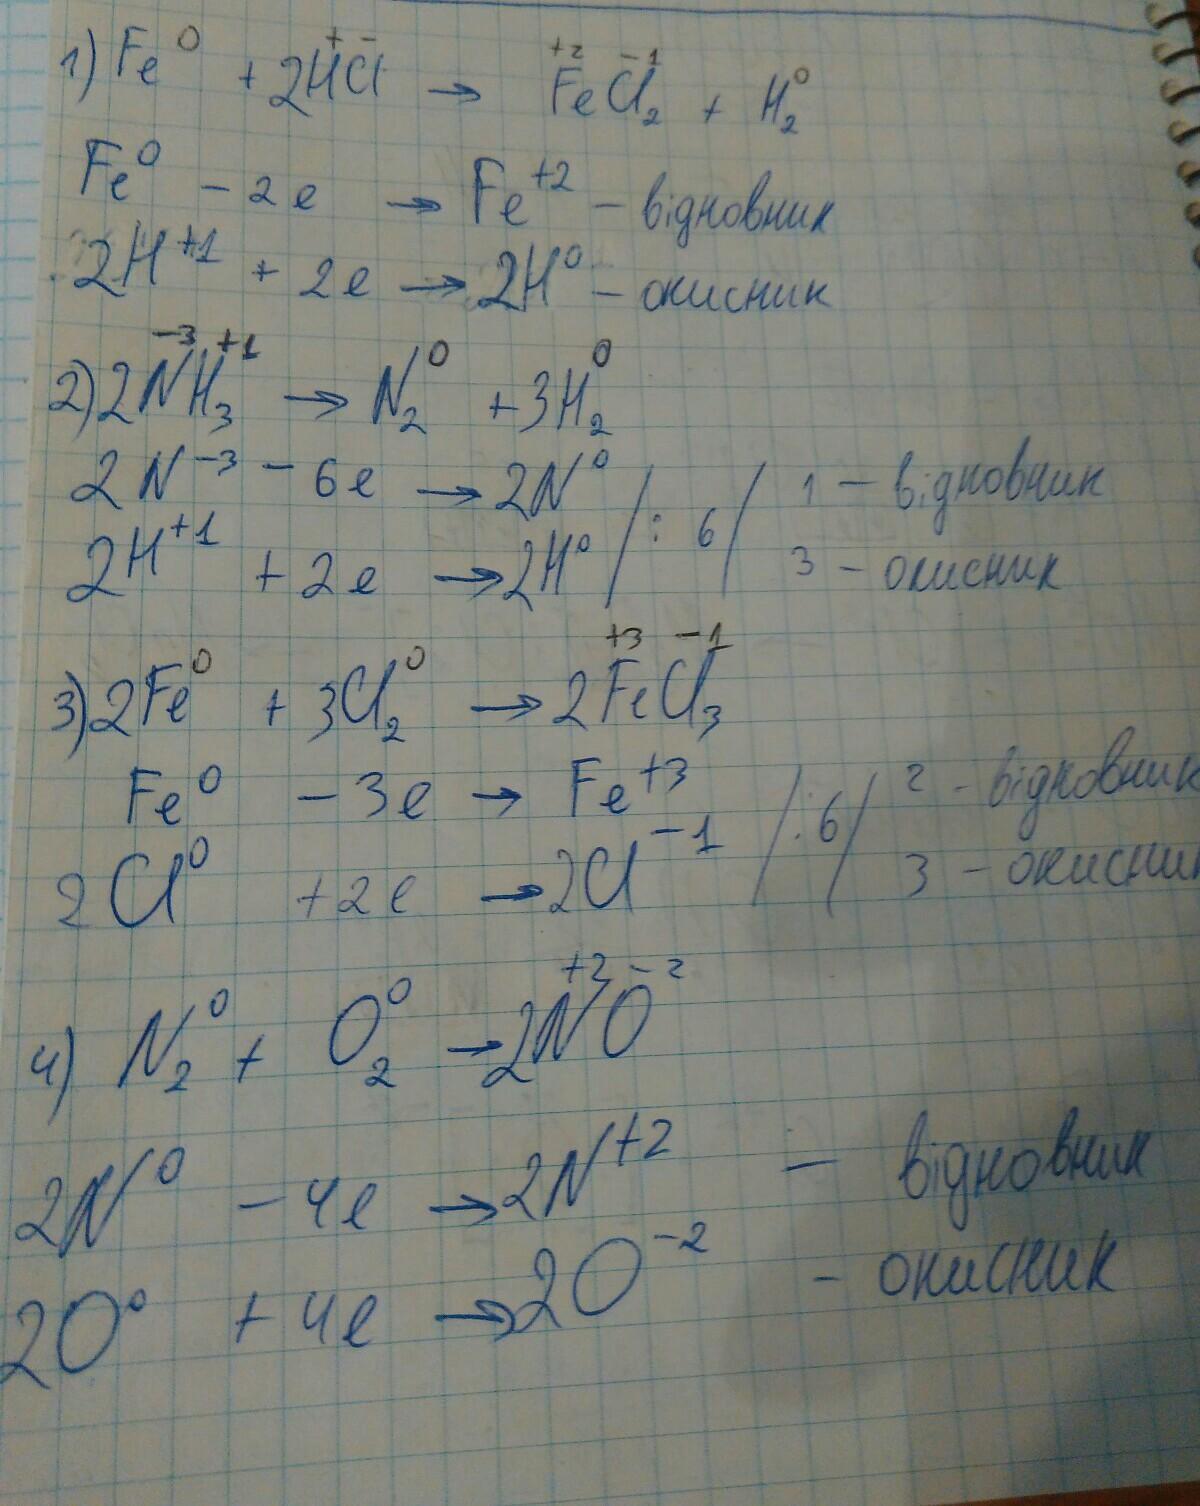 1) Fe⁰ + 2H⁺Cl⁻ → Fe⁺²Cl₂⁻¹ + H₂⁰
Fe⁰ - 2e → Fe⁺² - відновник
2H⁺¹ + 2e → 2H⁰ - окисник
2) 2N⁻³H₃⁺¹ → N₂⁰ + 3H₂⁰
2N⁻³ - 6e → 2N⁰ / : 6 / 1 - відновник
2H⁺¹ + 2e → 2H⁰ / 3 - окисник
3) 2Fe⁰ + 3Cl₂⁰ → 2Fe⁺³Cl₃⁻¹
Fe⁰ - 3e → Fe⁺³ / : 6 / 2 - відновник
2Cl⁰ + 2e → 2Cl⁻¹ / 3 - окисник
4) N₂⁰ + O₂⁰ → 2N⁺²O⁻²
2N⁰ - 4e → 2N⁺² - відновник
2O⁰ + 4e → 2O⁻² - окисник